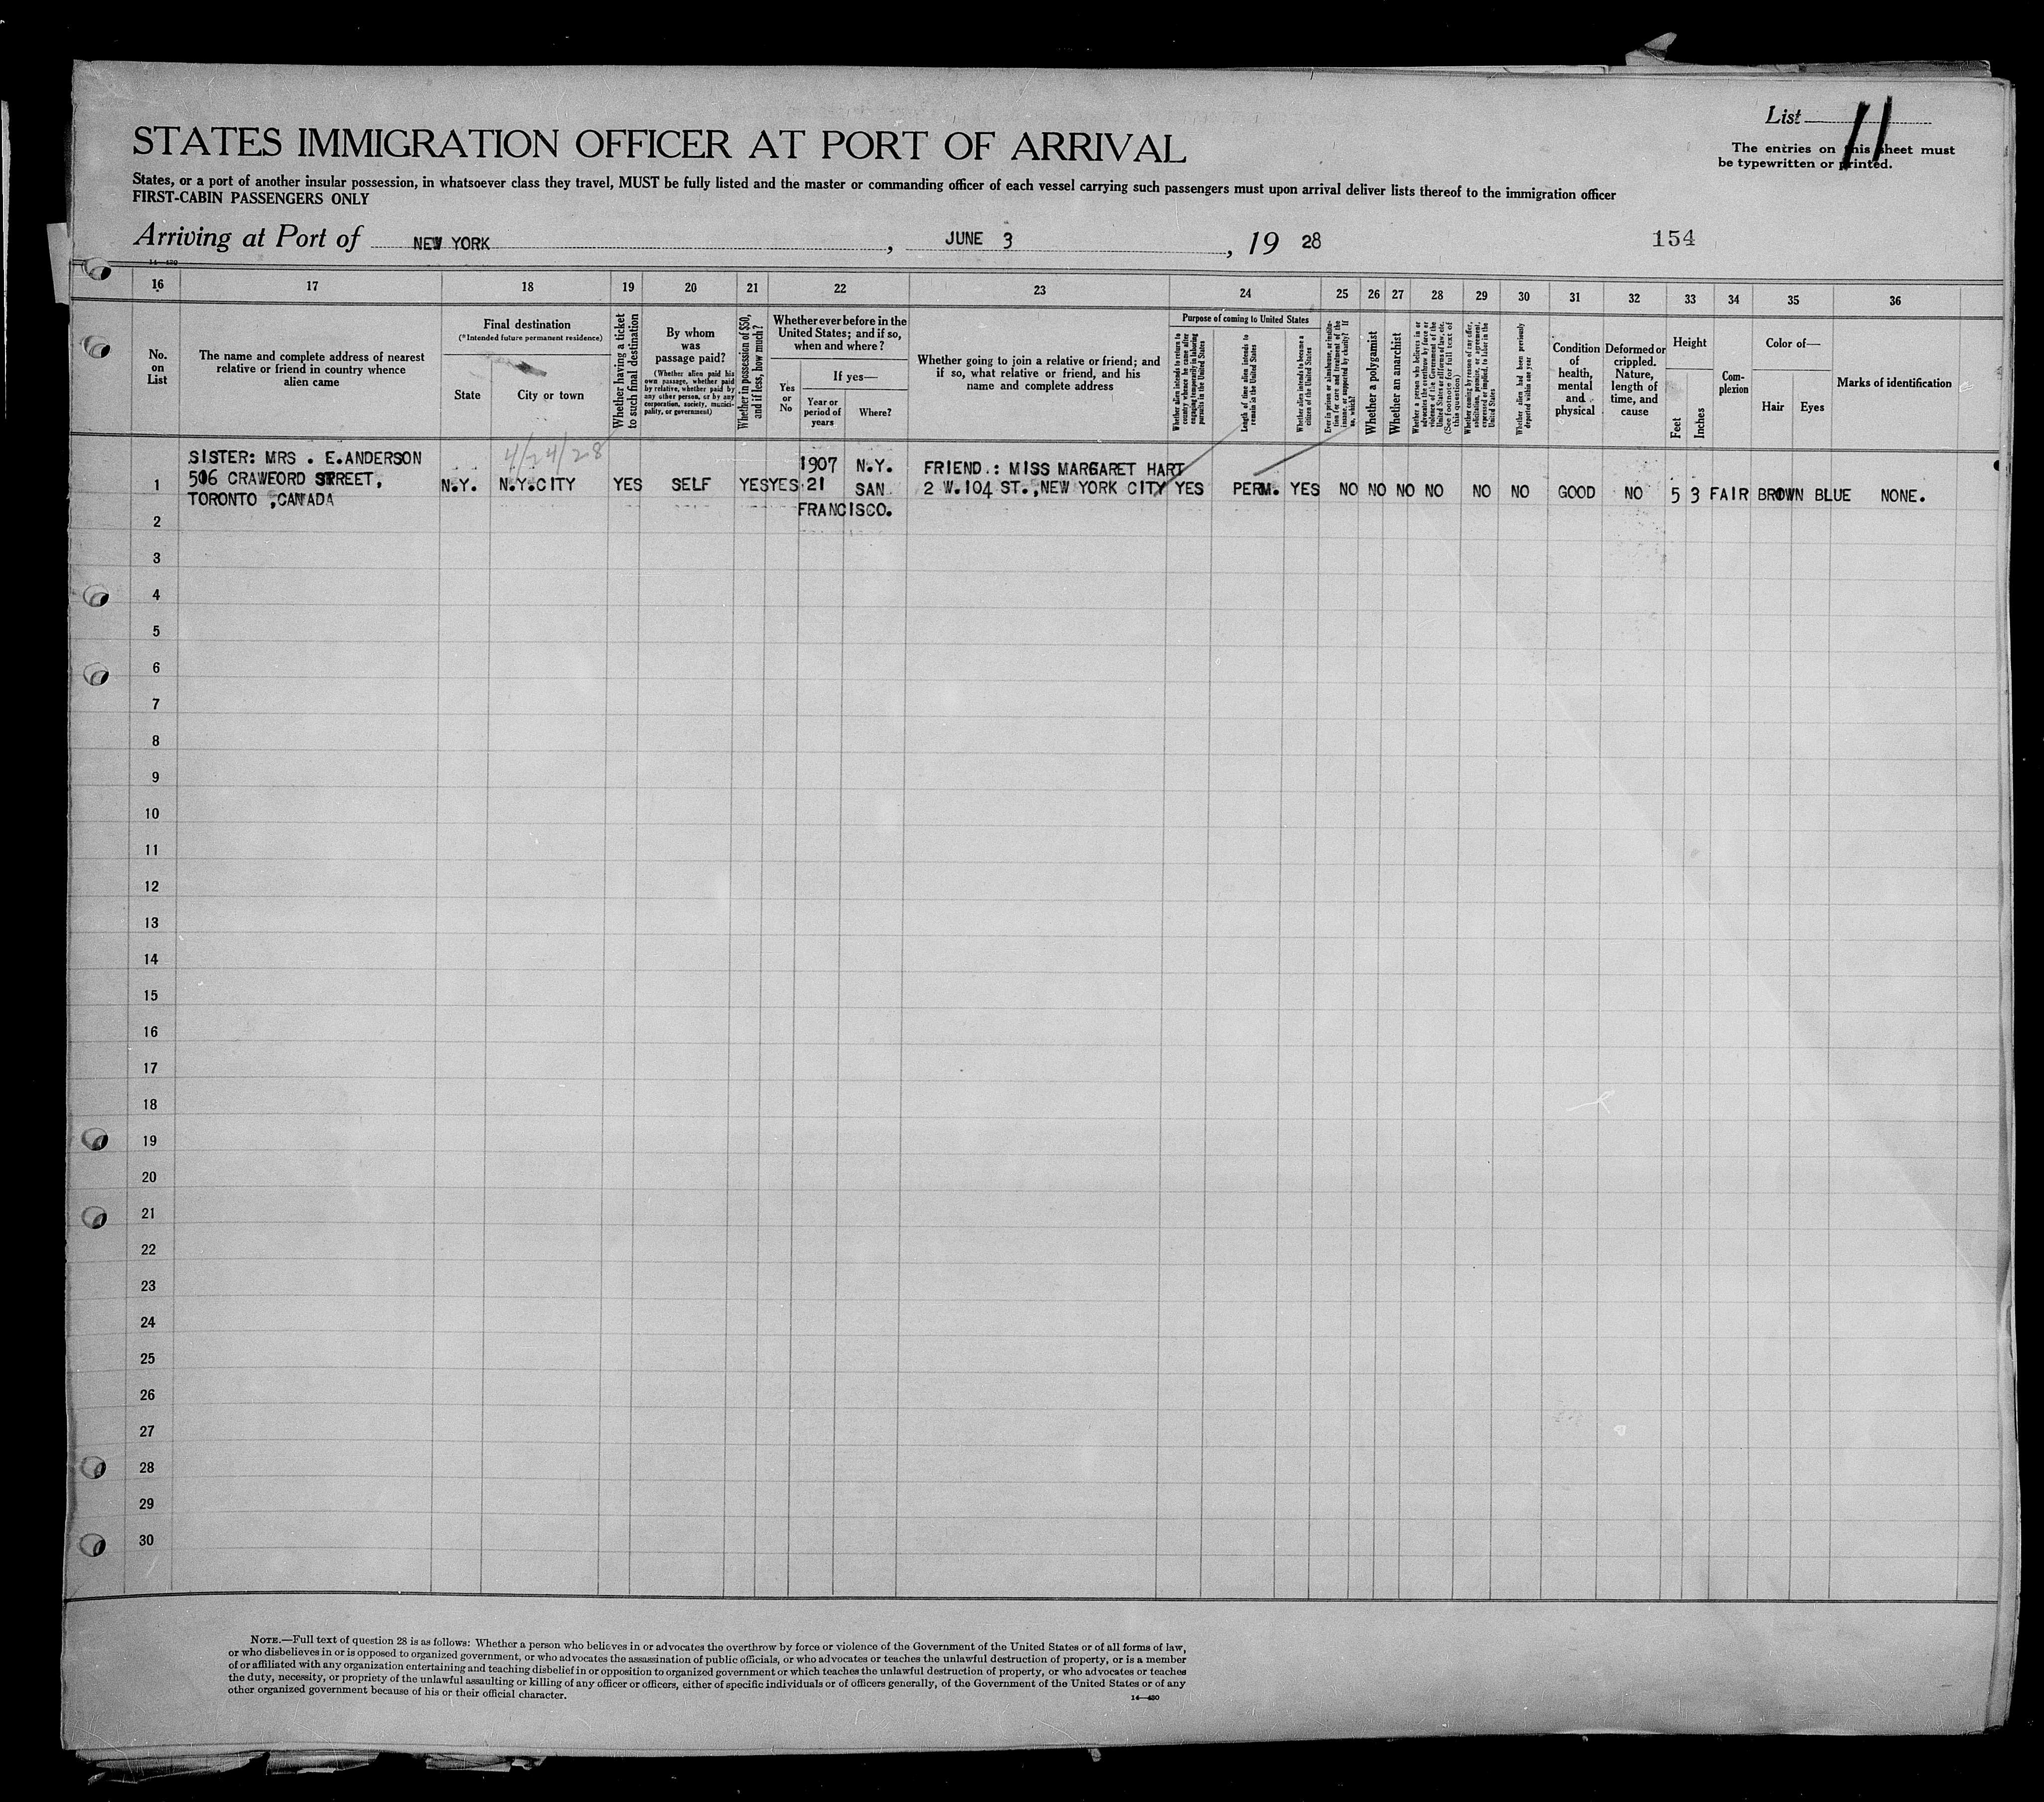 List 11
The entries on this sheet must
be typewritten or printed.
STATES IMMIGRATION OFFICER AT PORT OF ARRIVAL
States, or a port of another insular possession, in whatsoever class they travel, MUST be fully listed and the master or commanding officer of each vessel carrying such passengers must upon arrival deliver lists thereof to the immigration officer
FIRST-CABIN PASSENGERS ONLY
Arriving at Port of NEW YORK, JUNE 3, 19 28
154
16 17 18 19 20 21 22 23 24 25 26 27 28 29 30 31 32 33 34 35 36
No.
on
List
The name and complete address of nearest
relative or friend in country whence
alien came
Final destination
(*Intended future permanent residence)
State
City or town
Whether having a ticket
to such final destination
By whom
was
passage paid?
(Whether alien paid his
own passage, whether paid
by relative, whether paid by
any other person, or by any
corporation, society, munici-
pality, or government)
Whether in possession of $50,
and if less, how much?
Whether ever before in the
United States; and if so,
when and where?
Yes
or
No
If yes—
Year or
period of
years
Where?
Whether going to join a relative or friend; and
if so, what relative or friend, and his
name and complete address
Purpose of coming to United States
Whether alien intends to return to
country whence he came after
engaging temporarily in laboring
pursuits in the United States
Length of time alien intends to
remain in the United States
Whether alien intends to become a
citizen of the United States
Ever in prison or almshouse, or institu-
tion for care and treatment of the
insane, or supported by charity? If
so, which?
Whether a polygamist
Whether an anarchist
Whether a person who believes in or
advocates the overthrow by force or
violence of the Government of the
United States or all forms of law, etc.
(See footnote for full text of
this question)
Whether coming by reason of any offer,
solicitation, promise, or agreement,
expressed or implied, to labor in the
United States
Whether alien had been previously
deported within one year
Condition
of
health,
mental
and
physical
Deformed or
crippled.
Nature,
length of
time, and
cause
Height
Feet
Inches
Com-
plexion
Color of—
Hair
Eyes
Marks of identification
4/24/28
SISTER: MRS . E.ANDERSON
506 CRAWFORD STREET,
TORONTO ,CANADA
1 N.Y. N.Y.CITY YES SELF YES YES
1907 N.Y.
21 SAN
FRANCISCO.
FRIEND.: MISS MARGARET HART
2 W.104 ST.,NEW YORK CITY
YES PERM. YES NO NO NO NO NO NO GOOD NO 5 3 FAIR BROWN BLUE NONE.
2
3
4
5
6
7
8
9
10
11
12
13
14
15
16
17
18
19
20
21
22
23
24
25
26
27
28
29
30
NOTE.—Full text of question 28 is as follows: Whether a person who believes in or advocates the overthrow by force or violence of the Government of the United States or of all forms of law,
or who disbelieves in or is opposed to organized government, or who advocates the assassination of public officials, or who advocates or teaches the unlawful destruction of property, or is a member
of or affiliated with any organization entertaining and teaching disbelief in or opposition to organized government or which teaches the unlawful destruction of property, or who advocates or teaches
the duty, necessity, or propriety of the unlawful assaulting or killing of any officer or officers, either of specific individuals or of officers generally, of the Government of the United States or of any
other organized government because of his or their official character.
14—430